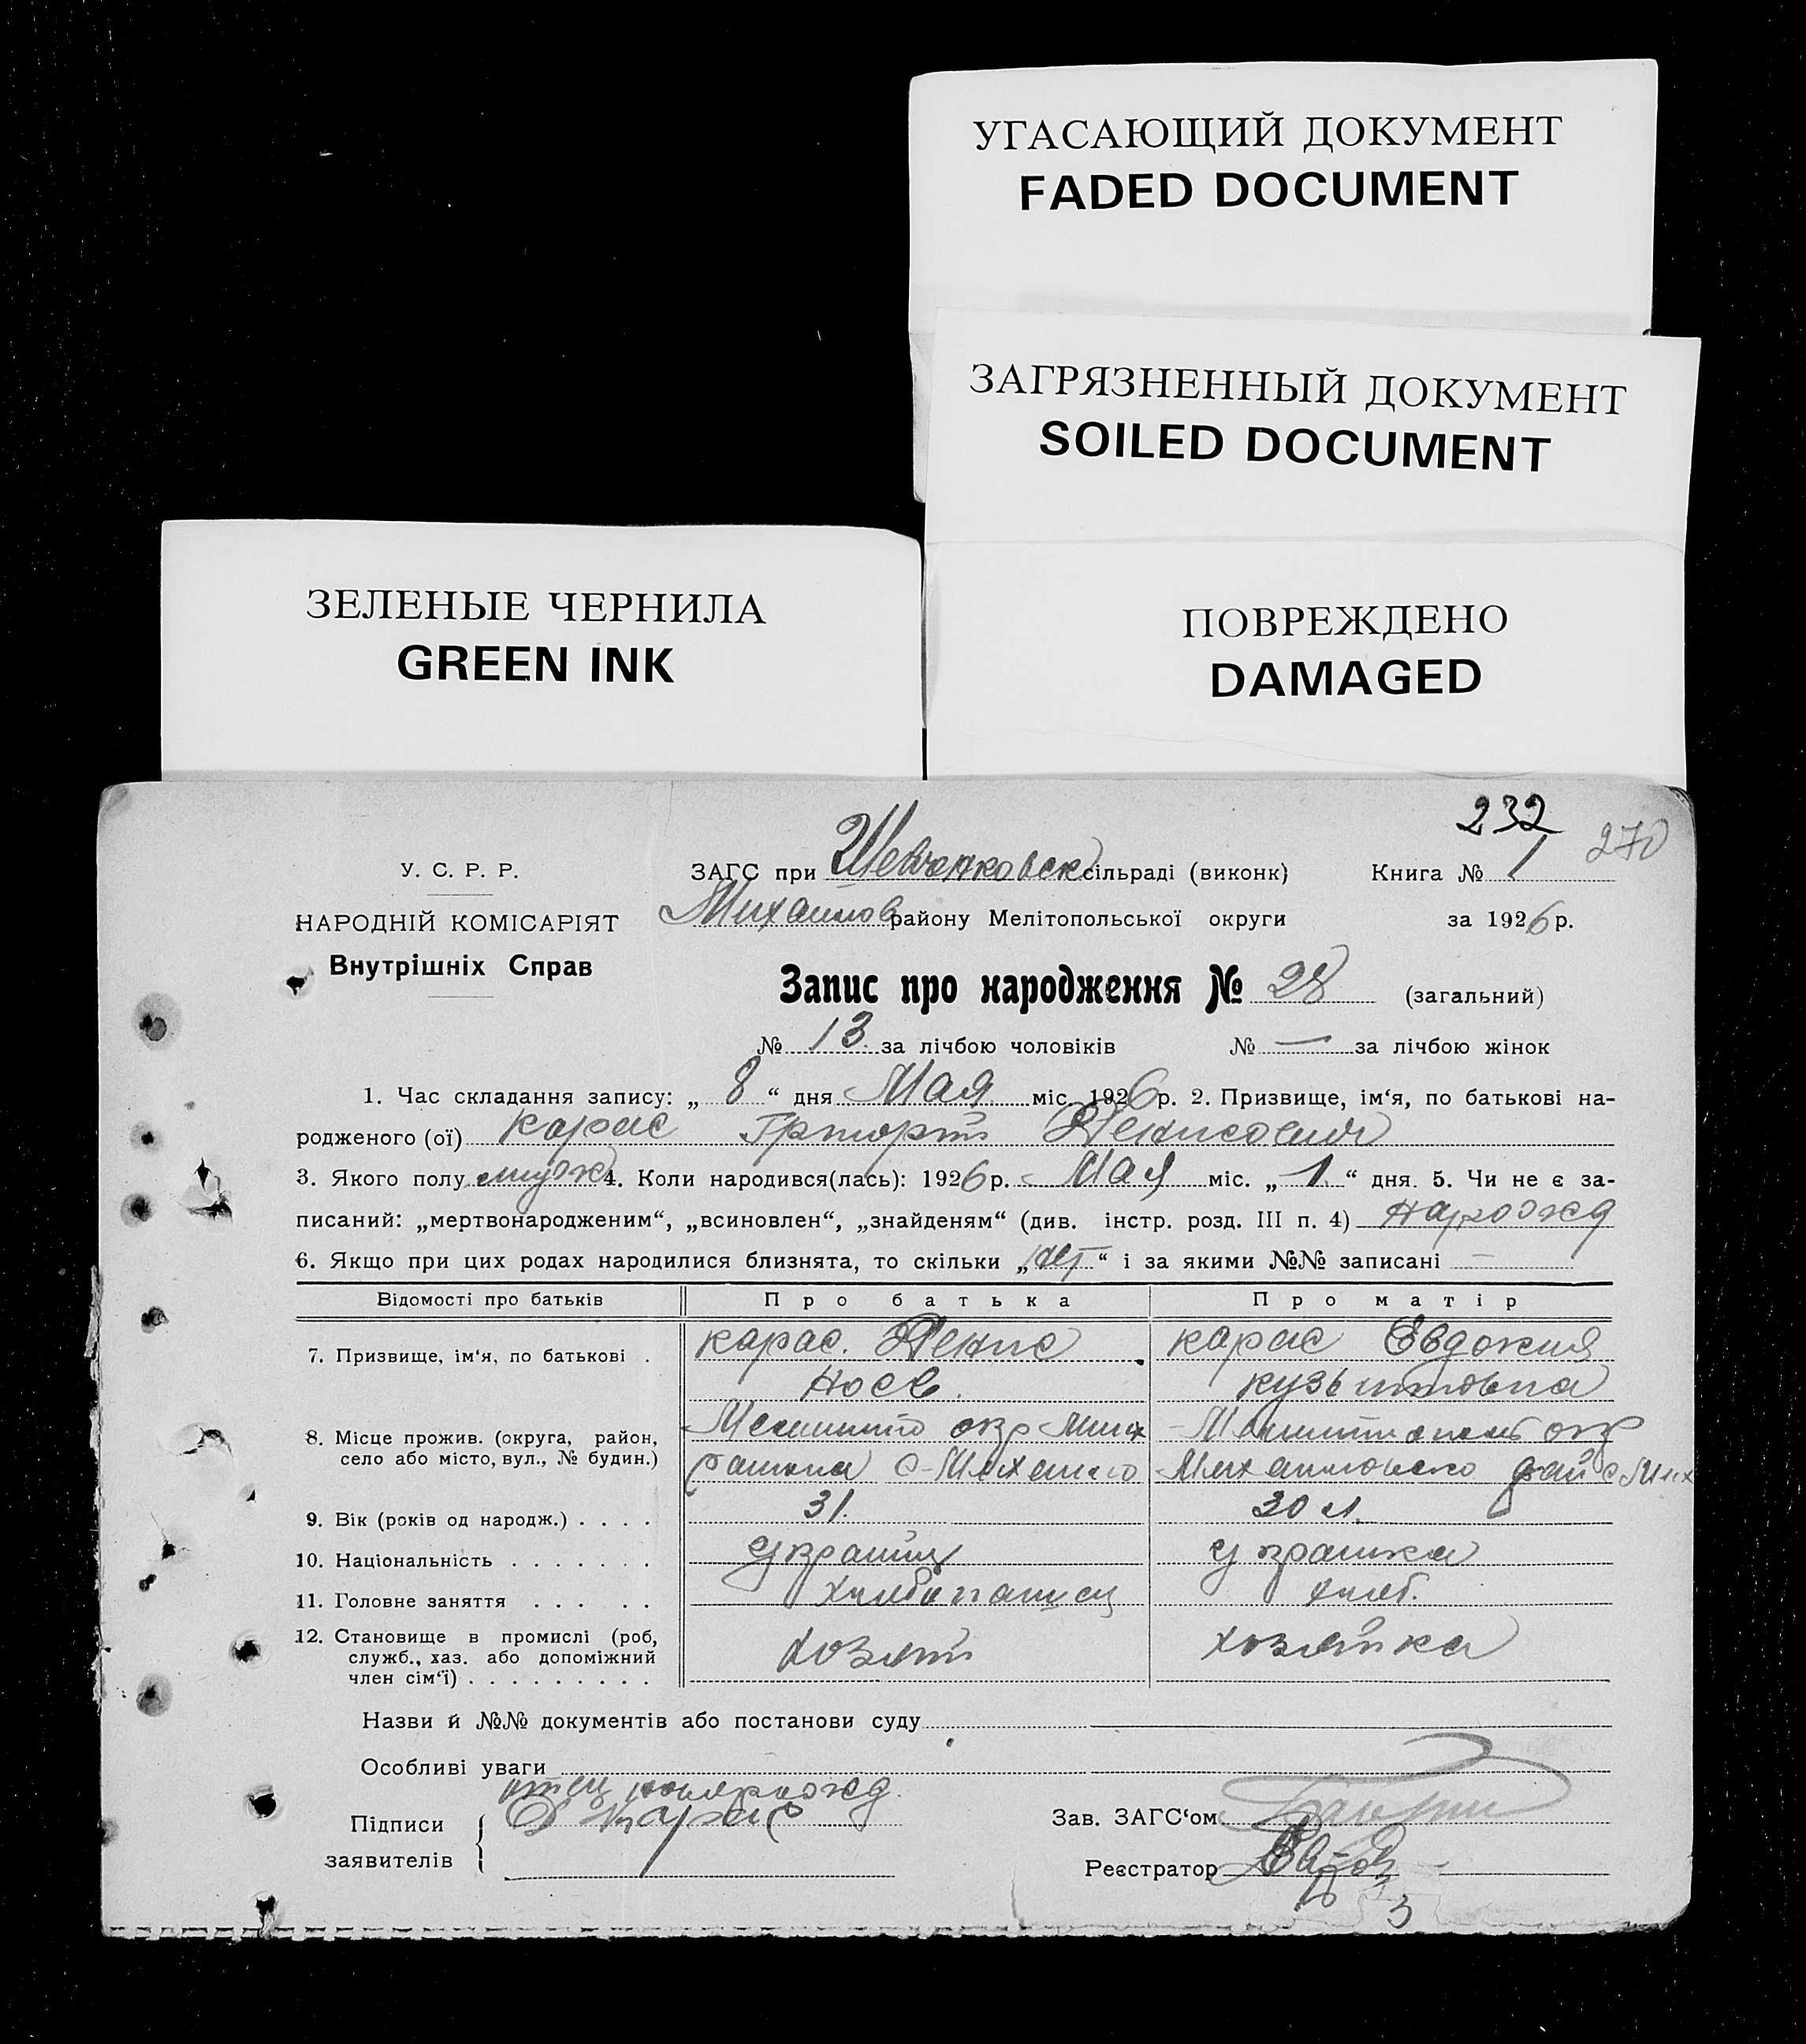 УГАСАЮЩИЙ ДОКУМЕНТ
FADED DOCUMENT
ЗАГРЯЗНЕННЫЙ ДОКУМЕНТ
SOILED DOCUMENT
ЗЕЛЕНЫЕ ЧЕРНИЛА
GREEN INK
ПОВРЕЖДЕНО
DAMAGED
232
270
У. С. Р. Р.
НАРОДНІЙ КОМІСАРІЯТ
Внутрішніх Справ
ЗАГС при Шевченковск сільраді (виконк) Книга № 1
Михайлов району Мелітопольської округи за 1926 р.
Запис про народження № 28 (загальний)
№ 13 за лічбою чоловіків № — за лічбою жінок
1. Час складання запису: „ 8 “ дня Мая міс. 1926 р. 2. Призвище, ім‘я, по батькові на-
родженого (ої) Карас Григорій Денисович
3. Якого полу муж 4. Коли народився(лась): 1926 р. Мая міс. „ 1 “ дня. 5. Чи не є за-
писаний: „мертвонародженим“, „всиновлен“, „знайденям“ (див. інстр. розд. III п. 4) нарожд
6. Якщо при цих родах народилися близнята, то скільки „ нет “ і за якими №№ записані —
Відомості про батьків Про батька Про матір
7. Призвище, ім‘я, по батькові . Карас. Денис Карас Евдокия
Кузьмовна
8. Місце прожив. (округа, район,
село або місто, вул., № будин.)
9. Вік (років од народж.) . . . . 31. 30 л.
10. Національність . . . . . . . Украинц Украинка
11. Головне заняття . . . . . Хлебопашец хлеб.
12. Становище в промислі (роб,
служб., хаз. або допоміжний
член сім‘ї) . . . . . . . . . хозяин хозяйка
Назви й №№ документів або постанови суду
Особливі уваги
отец
Підписи
заявителів
Д Карас
Зав. ЗАГС‘ом
Реєстратор
3